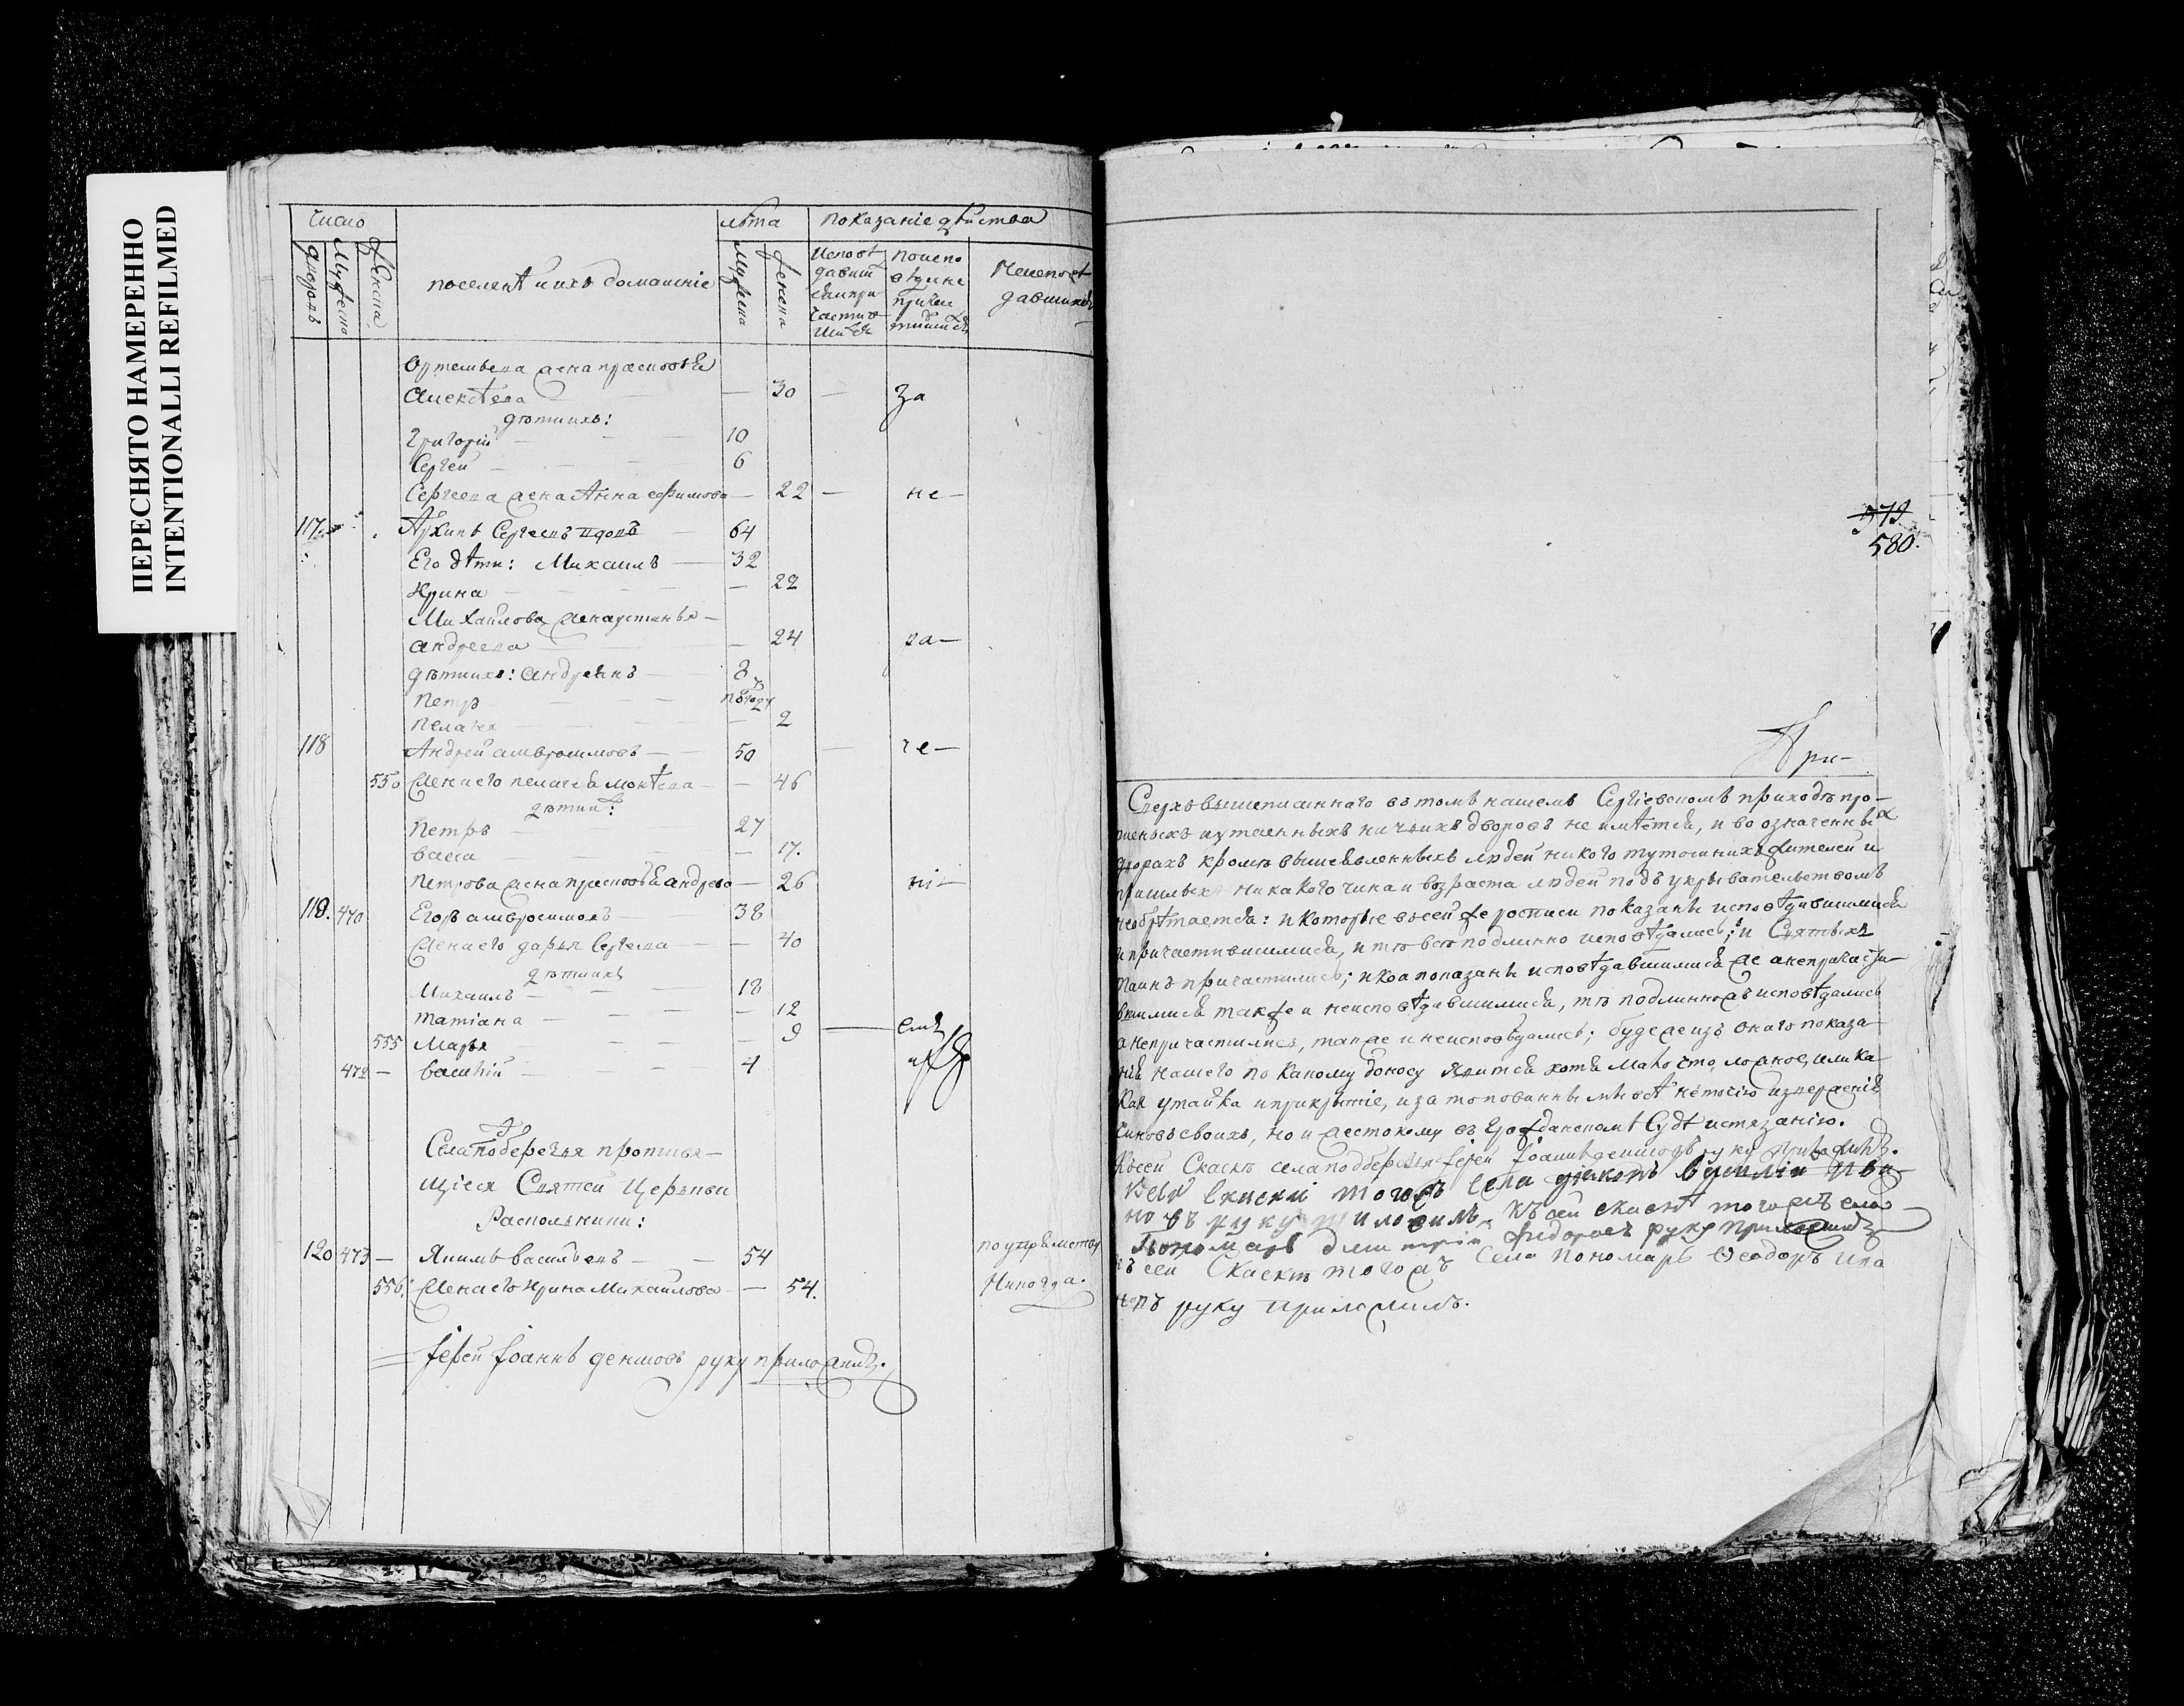 ПЕРЕСНЯТО НАМЕРЕННО
INTENTIONALLI REFILMED
число
лѣта
показаніе дѣйства
дворовъ
Мужеска
Женска
поселене и ихъ домашніе
Мужеска
Женска
Исповѣ
давши
сѧ и при
частив
шіисѧ
поиспо
вѣди не
причас
тившіисѧ
Неисповѣ
давшихъ
Артемьева жена прасковьѧ
алексѣева — 30 — за
дѣти ихъ:
григорій 10
Сергей 6
Сергеева жена Анна ефимова — 22 — не —
117. Архипъ Сергеевъ вдовъ 64
Его дѣти: Михаилъ 32
Ирина — 22
Михайлова жена устинья —
андреева — 24 га —
дѣти ихъ: андреянъ 8
петръ
пелагея — 2
118 Андрей амвросимовъ — 50 — че —
550 Жена его пелагеѧ мокѣева — 46
дѣти ихъ:
петръ 27
васса — 17.
петрова жена прасковьѧ андреева — 26 ні —
119. 470 Егоръ амвросимовъ 38
Жена его дарья Сергеева — 40
дѣти ихъ
Михаилъ 18
татіана — 12
555 Марья — 9 — емъ
472 — василій 4
Села подберезья противѧ —
щіесѧ Святей Церькви
Раскольники:
120 473 — Якимъ васильевъ — 54 по упрямству
556. Жена его Ирина Михаилова — 54. Никогда.
іерей іоаннъ денисовъ руку приложилъ.
579
580.
При-
Сверхъ вышеписаннаго въ томъ нашемъ Сергіевскомъ приходѣ про-
писныхъ и утаенныхъ ничьихъ дворовъ не имѣетсѧ, и во означенныхъ
дворахъ кромѣ вышеѧвленныхъ людей никого тутошнихъ жителей и
пришлыхъ никакого чина и возраста людей подъ укрывательствомъ
необрѣтаетсѧ: и которые въ сей же росписи показаны исповѣдавшимисѧ
и причастившимисѧ, и тѣ всѣ подлинно исповѣдались; и Святыхъ
таинъ причастились; и коя показаны исповѣдавшимисѧ же а непричасти-
вшимисѧ также и неисповѣдавшимисѧ, тѣ подлинножъ исповѣдались
а непричастились, такъже и неисповѣдались; буде же изъ онаго показа-
ніѧ нашего по какому доносу явитсѧ хотѧ мало что ложное, или ка-
каѧ утайка и прикрытіе, и за то повинны мы не точію изверженію
чиновъ своихъ, но и жестокому въ гражданскомъ Судѣ истязанію.
Къ сей Скаскѣ села подберезья іерей іоаннъ денисовъ руку приложилъ.
К сей скаски тогожъ села дьяконъ василій ива-
новъ руку приложилъ. Къ сей скаскѣ тогожъ села
Пономарь дмитрій Федоровъ руку приложилъ
Къ сей Скаскѣ тогожъ Села пономарь Ѳеодоръ ива
новъ руку приложилъ.